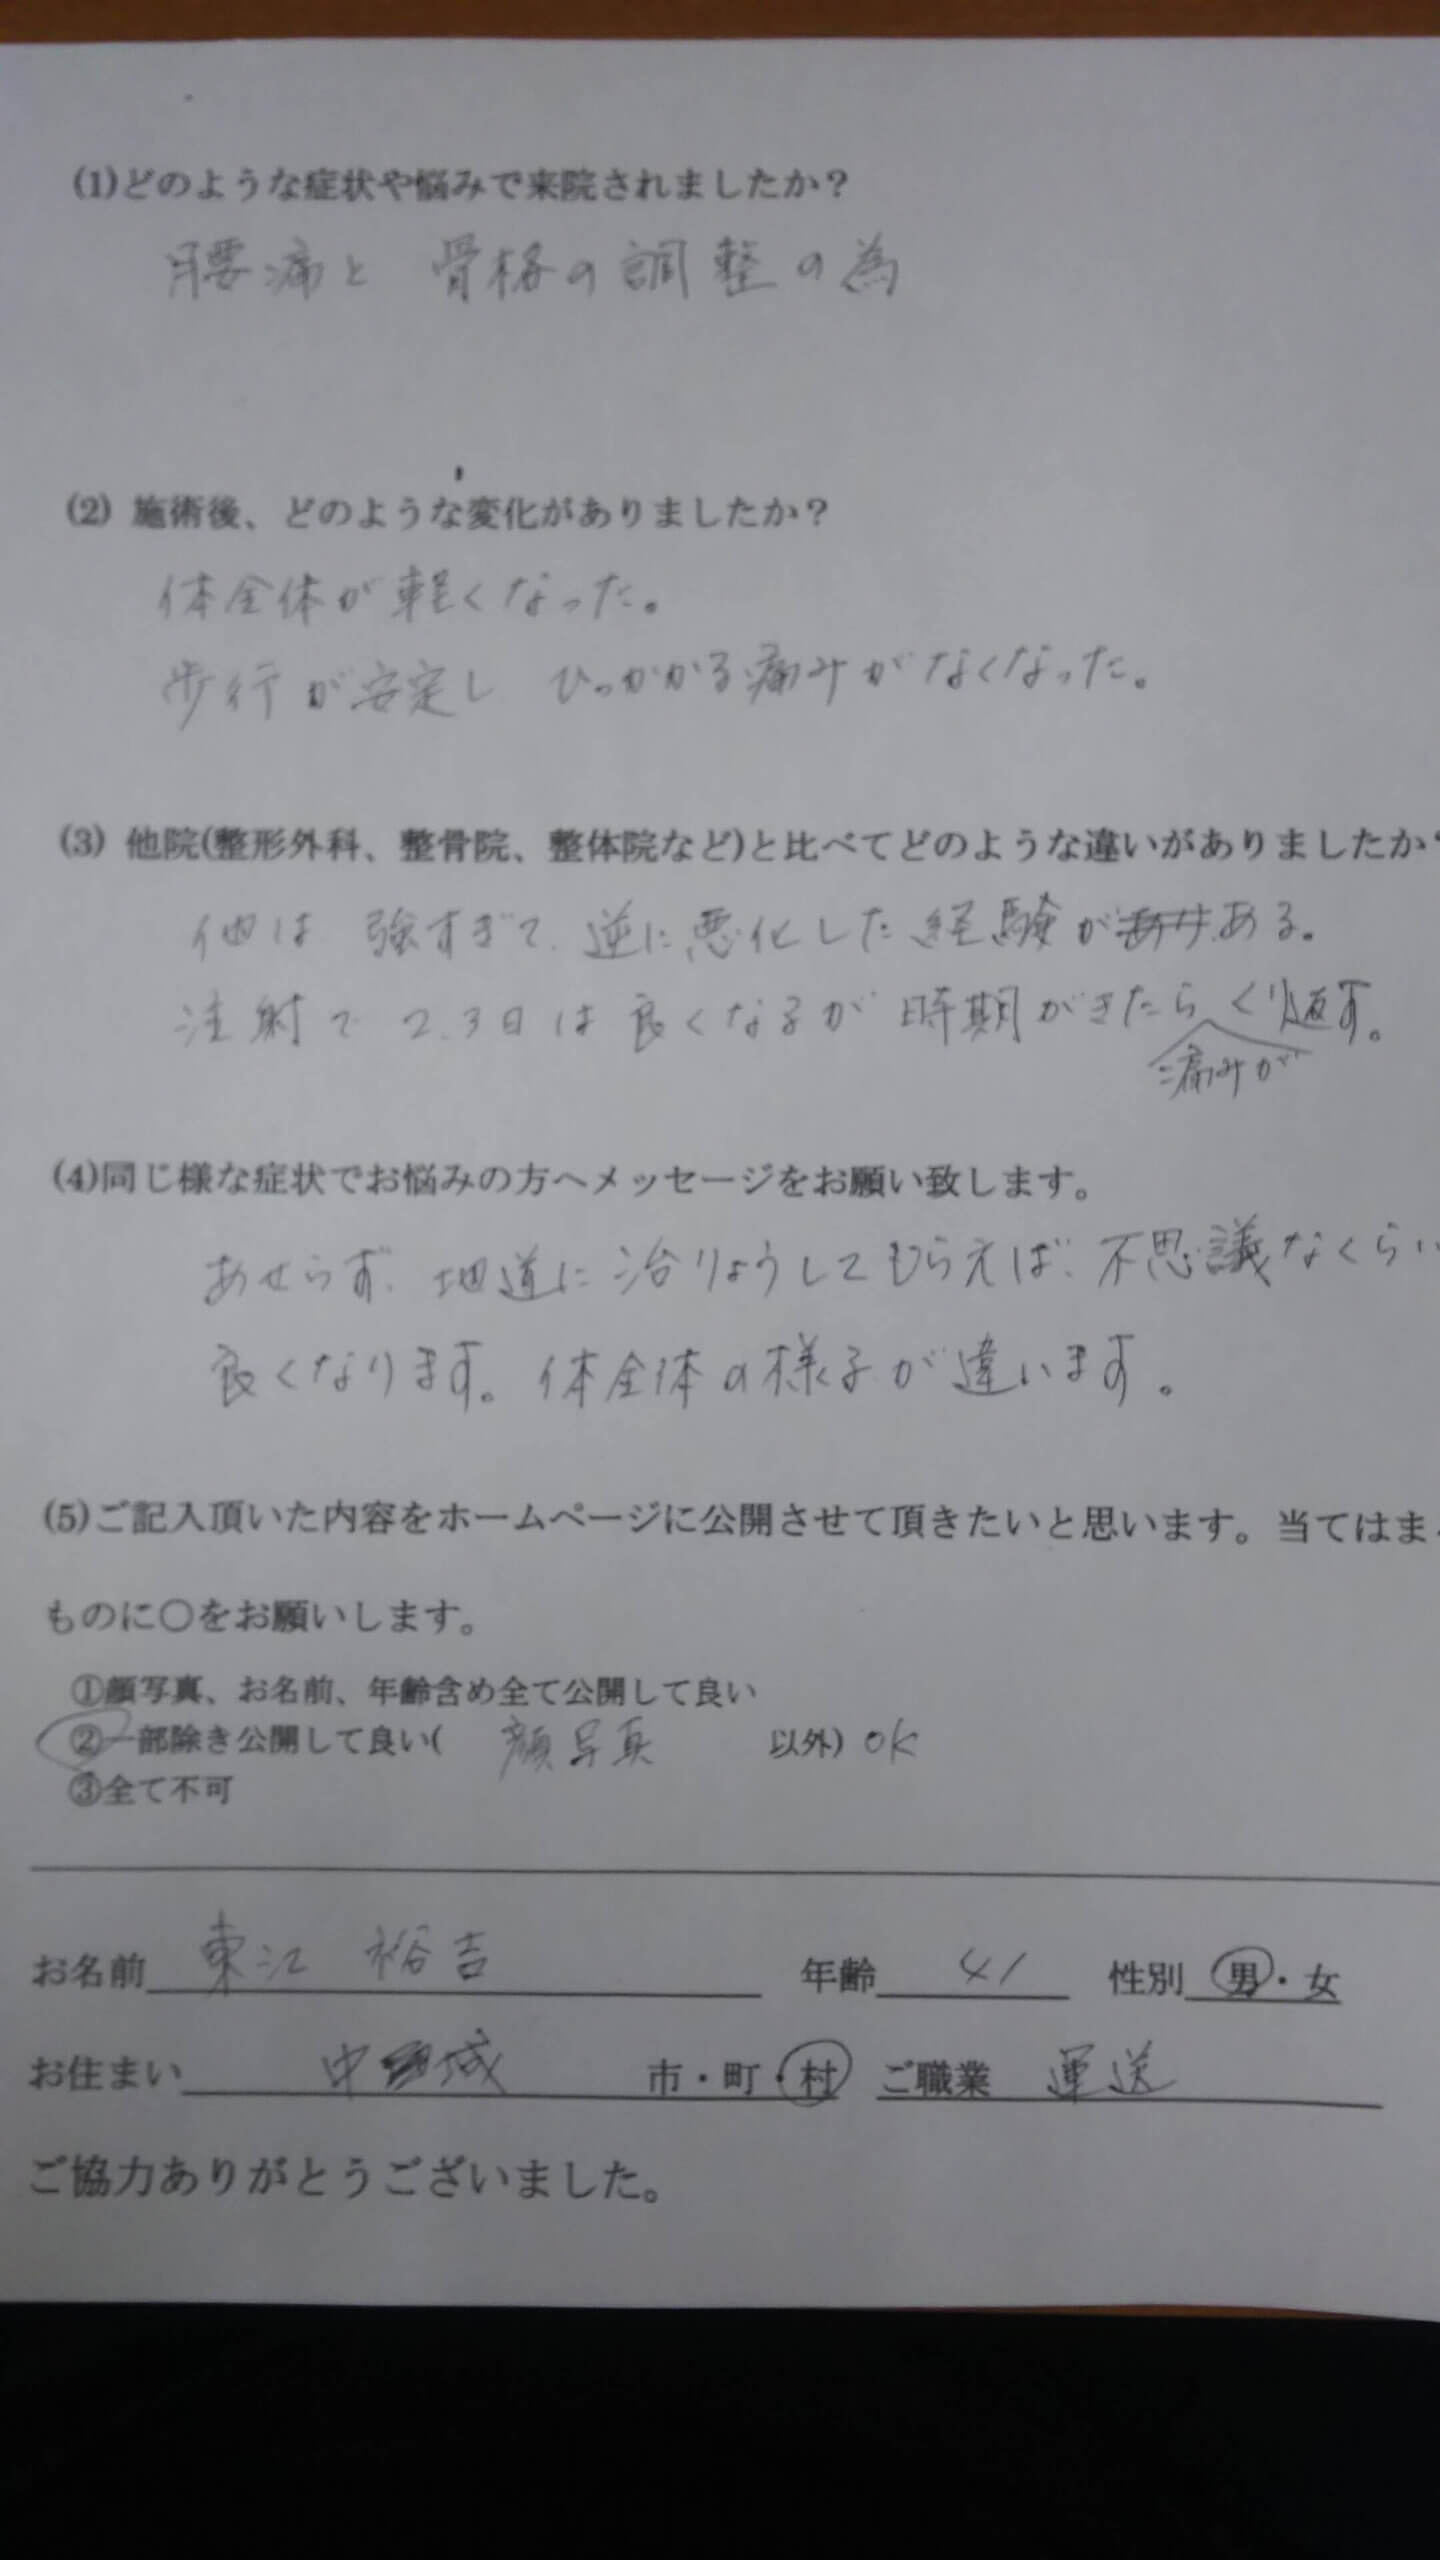 (1)どのような症状や悩みで来院されましたか?
腰痛と 骨格の調整の為
(2) 施術後、どのような変化がありましたか?
体全体が軽くなった。
歩行が安定し ひっかかる痛みがなくなった。
(3) 他院(整形外科、整骨院、整体院など)と比べてどのような違いがありましたか
他は 強すぎて、逆に悪化した経験がある。
注射で 2.3日は良くなるが 時期がきたら くり返す。
痛みが
(4)同じ様な症状でお悩みの方へメッセージをお願い致します。
あせらず、地道に治りょうしてもらえば、不思議なくらい
良くなります。体全体の様子が違います。
(5)ご記入頂いた内容をホームページに公開させて頂きたいと思います。当てはま
ものに○をお願いします。
①顔写真、お名前、年齢含め全て公開して良い
②一部除き公開して良い( 顔写真 以外) OK
③全て不可
お名前 東江 裕吉 年齢 41 性別 男・女
お住まい 中城 市・町・村 ご職業 運送
ご協力ありがとうございました。